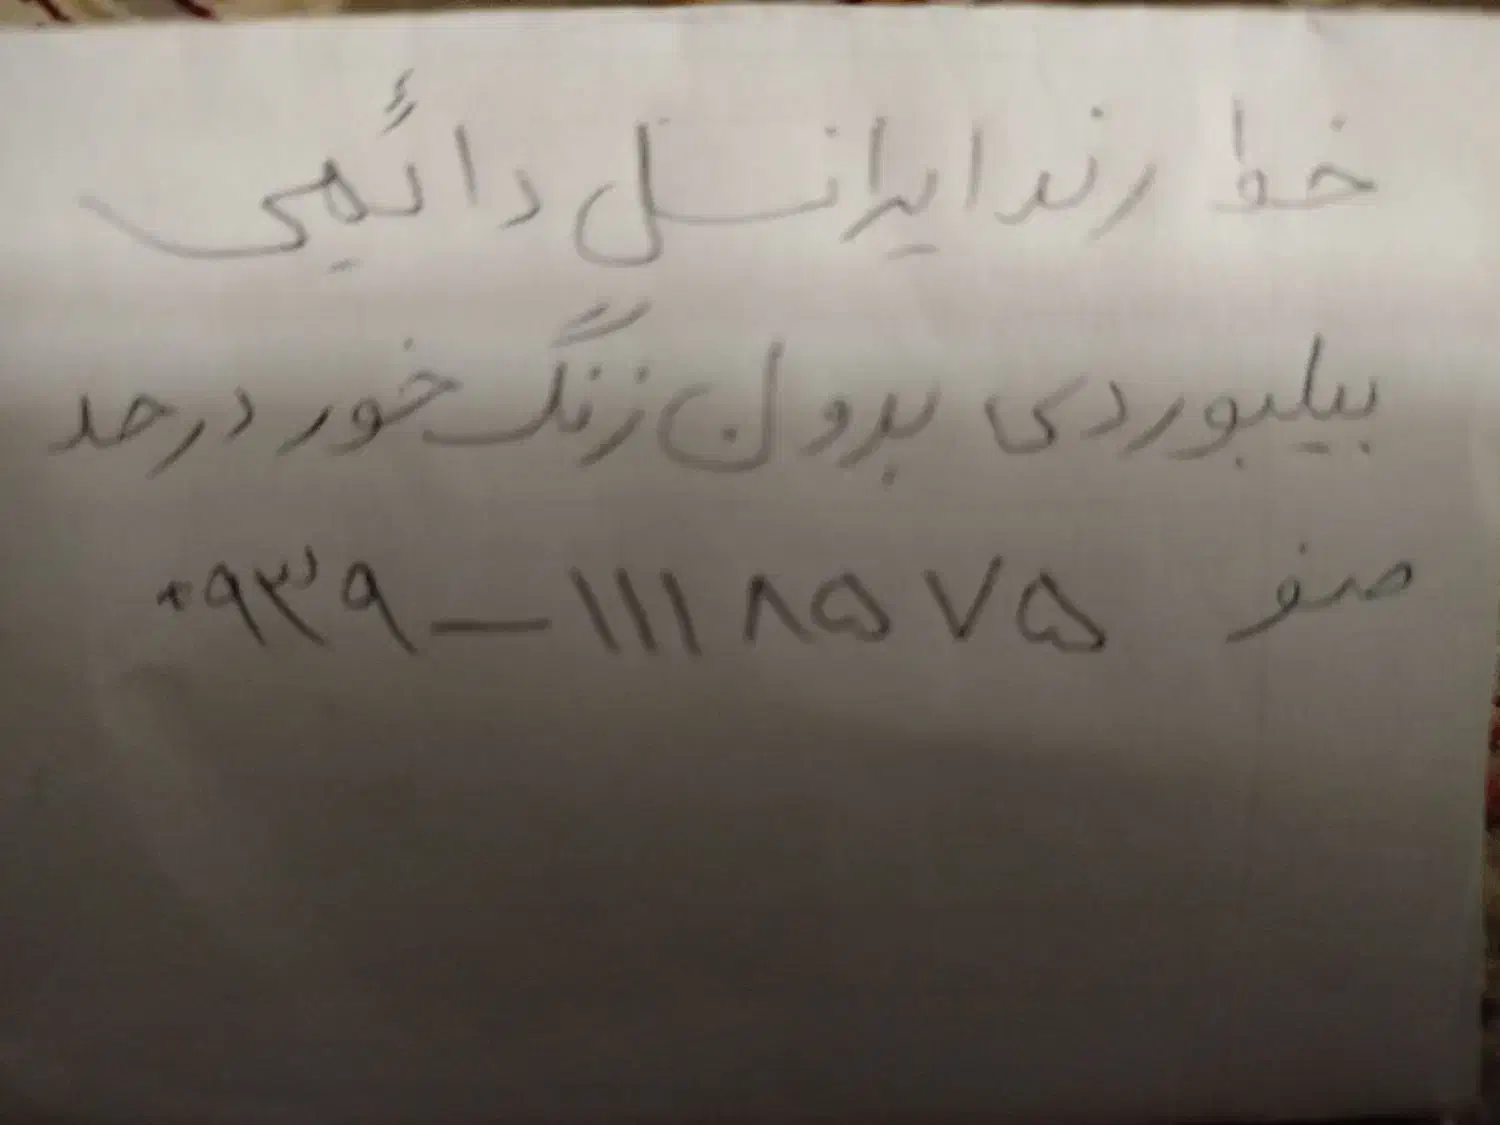 خط رند ایرانسل دائمی
بیلبوردی بدون زنگ خور در حد
صفر ۰۹۳۹-۱۱۱۸۵۷۵